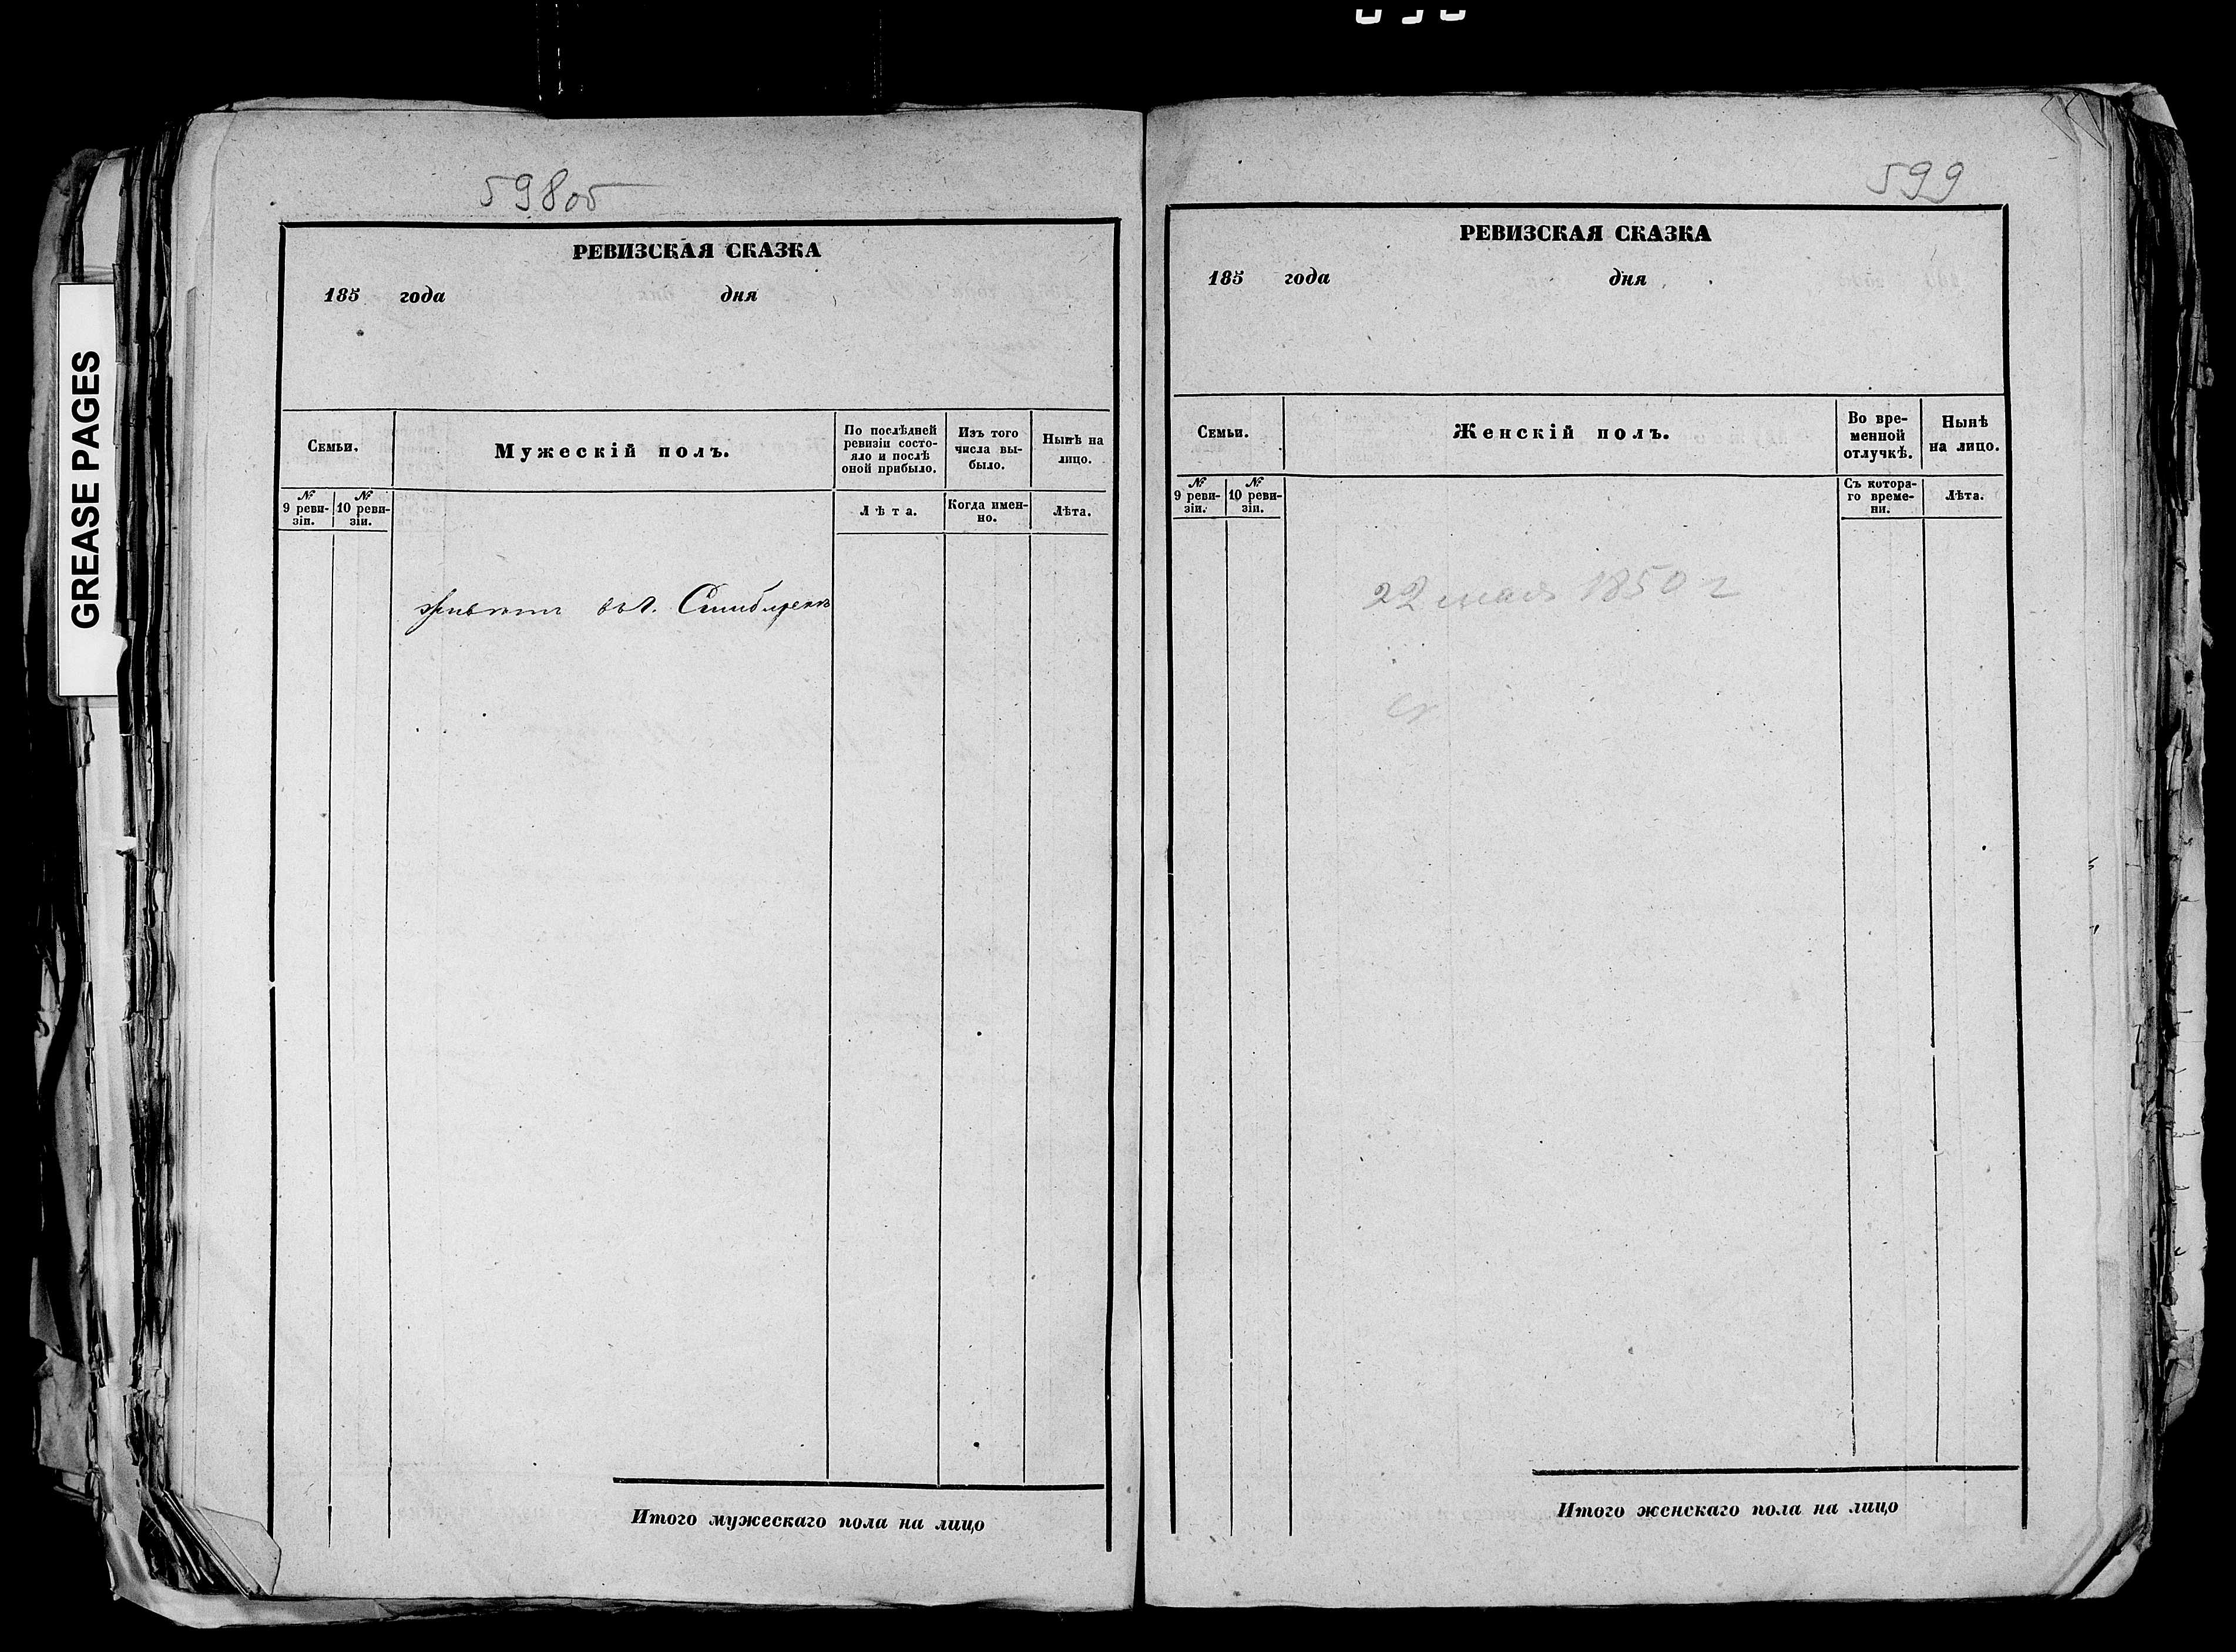 GREASE PAGES
598об
РЕВИЗСКАЯ СКАЗКА
185 года дня
Семьи.
Мужескій полъ.
По послѣдней ревизіи состо-
яло и послѣ оной прибыло.
Изъ того числа вы-
было.
Нынѣ на лицо.
№ 9 реви-
зіи.
№ 10 реви-
зіи.
Лѣта.
Когда имен-
но.
Лѣта.
живутъ въ г. Симбирскѣ
Итого мужескаго пола на лицо
599
РЕВИЗСКАЯ СКАЗКА
185 года дня
Семьи.
Женскій полъ.
Во вре-
менной
отлучкѣ.
Нынѣ
на лицо.
№ 9 реви-
зіи.
№ 10 реви-
зіи.
Съ котора-
го време-
ни.
Лѣта.
22 мая 1850 г
Итого женскаго пола на лицо